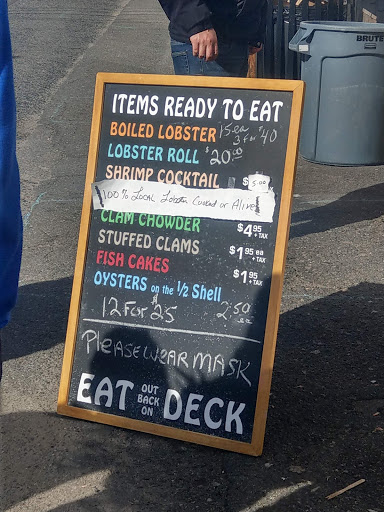 BRUTE
ITEMS READY TO EAT
BOILED LOBSTER 15ea
3 for $40
LOBSTER ROLL $20.00
SHRIMP COCKTAIL $5.00
100% Local Lobster Cooked or Alive
CLAM CHOWDER $4.95 + TAX
STUFFED CLAMS $1.95 ea + TAX
FISH CAKES $1.95 + TAX
OYSTERS on the 1/2 Shell
12 FOR $25 2.50 ea
PLEASE WEAR MASK
EAT OUT BACK ON DECK